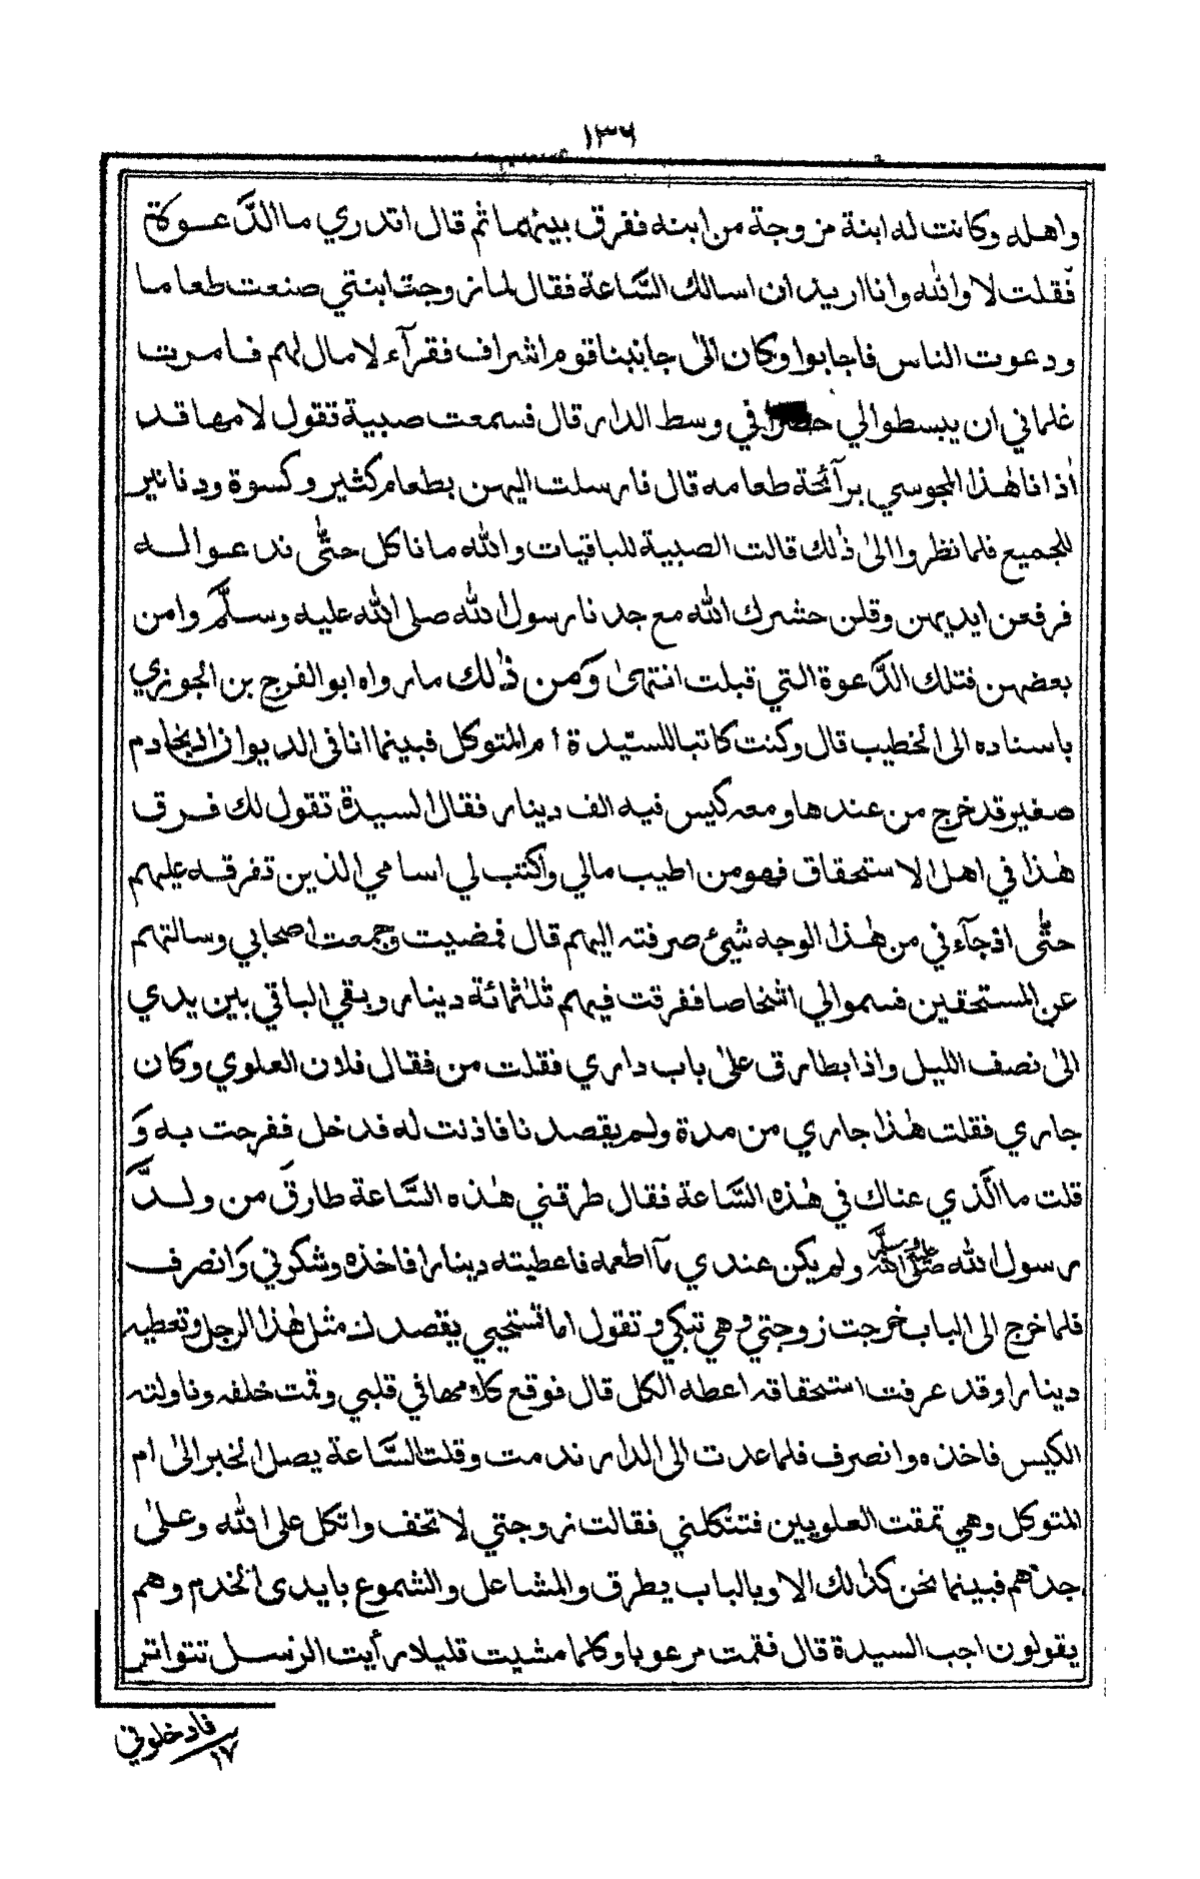 ١٣٦
واهله وكانت له ابنة مزوجة من ابنه ففرق بينهما ثم قال اتدري ما الدَّعوة
فقلت لا والله وانا اريد ان اسالك السَّاعة فقال لما زوجت ابنتي صنعت طعاما
ودعوت الناس فاجابوا وكان الىٰ جانبنا قوم اشراف فقرآء لا مال لهم فامرت
غلماني ان يبسطوا لي حصرا في وسط الدار قال فسمعت صبية تقول لامها قد
اٰذانا هٰذا المجوسي برآئحة طعامه قال فارسلت اليهن بطعام كثير وكسوة ودنانير
للجميع فلما نظروا الىٰ ذٰلك قالت الصبية للباقيات والله ما ناكل حتّٰى ندعوا له
فرفعن ايديهن وقلن حشرك الله مع جدنا رسول الله صلى الله عليه وسلَّم وامن
بعضهن فتلك الدَّعوة التي قبلت انتهىٰ وَمن ذٰلك مارواه ابوالفرج بن الجوزي
باسناده الى الخطيب قال وكنت كاتبا للسيّدة أم المتوكل فبينما انا فى الديوان اذ بخادم
صغير قد خرج من عندها ومعه كيس فيه الف دينار فقال السيدة تقول لك فرق
هٰذا في اهل الاستحقاق فهو من اطيب مالي واكتب لي اسامي الذين تفرقه عليهم
حتّٰى اذ جآءني من هٰذا الوجه شيئ صرفته اليهم قال فمضيت وجمعت اصحابي وسالتهم
عن المستحقين فسموا لي اشخاصا ففرقت فيهم ثلٰثمائة دينار وبقي الباقي بين يدي
الىٰ نصف الليل واذا بطارق علىٰ باب داري فقلت من فقال فلان العلوي وكان
جاري فقلت هٰذا جاري من مدة ولم يقصدنا فاذنت له فدخل ففرحت به وَ
قلت ما الَّذي عناك في هٰذه السَّاعة فقال طرقني هٰذه السَّاعة طارقَ من ولدَّ
رسول الله ﷺ ولم يكن عندي مآ اطعمه فاعطيته دينارا فاخذه وشكرني وَانصرف
فلما خرج الى الباب خرجت زوجتي وهي تبكي وتقول اما تستحيي يقصدك مثل هٰذا الرجل وتعطيه
دينارا وقد عرفت استحقاقه اعطه الكل قال فوقع كلامها في قلبي وقمت خلفه وناولته
الكيس فاخذه وانصرف فلما عدت الى الدار ندمت وقلت السَّاعة يصل الخبر الىٰ ام
المتوكل وهي تمقت العلويين فتنكلني فقالت زوجتي لا تخف واتكل على الله وعلىٰ
جدهم فبينما نحن كذٰلك الا وبالباب يطرق والمشاعل والشموع بايدى الخدم وهم
يقولون اجب السيدة قال فقمت مرعوبا وكلما مشيت قليلا رأيت الرسل تتواتر
١٧